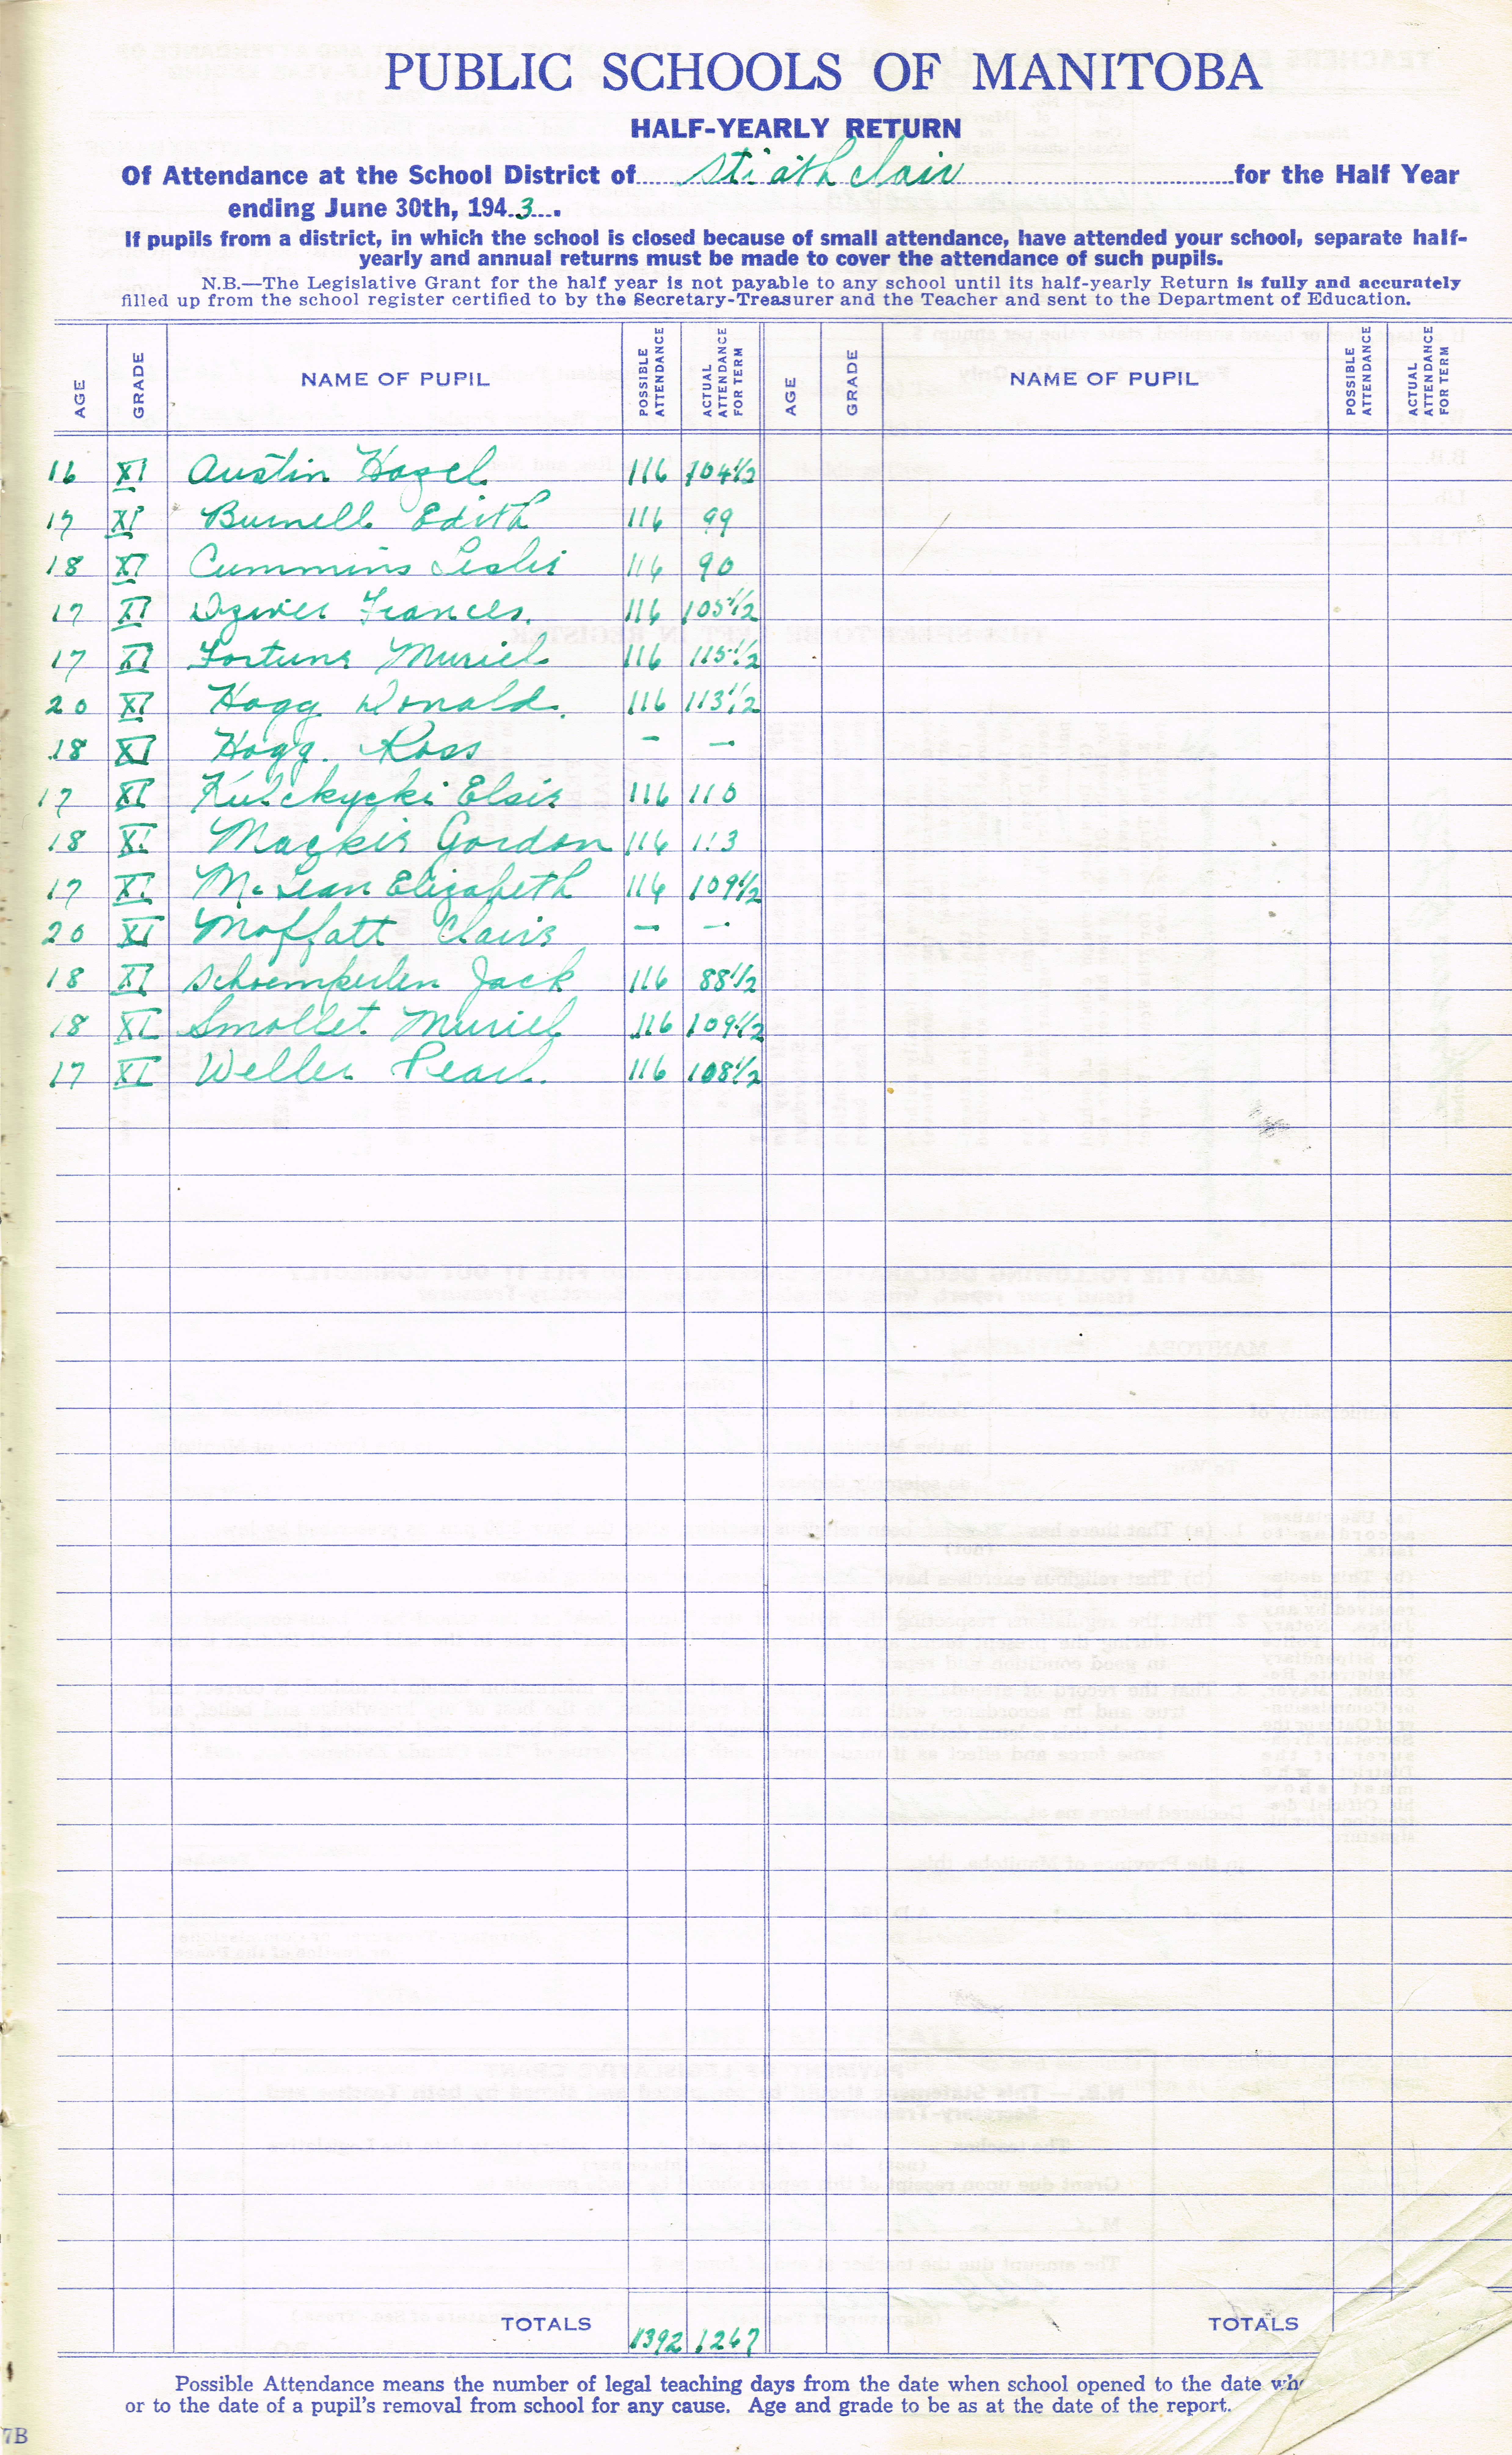 PUBLIC SCHOOLS OF MANITOBA
HALF-YEARLY RETURN
Of Attendance at the School District of Strathclair for the Half Year
ending June 30th, 1943.
If pupils from a district, in which the school is closed because of small attendance, have attended your school, separate half-
yearly and annual returns must be made to cover the attendance of such pupils.
N.B.—The Legislative Grant for the half year is not payable to any school until its half-yearly Return is fully and accurately
filled up from the school register certified to by the Secretary-Treasurer and the Teacher and sent to the Department of Education.
AGE GRADE NAME OF PUPIL POSSIBLE ATTENDANCE ACTUAL ATTENDANCE FOR TERM AGE GRADE NAME OF PUPIL POSSIBLE ATTENDANCE ACTUAL ATTENDANCE FOR TERM
16 XI Austin Hazel 116 104 1/2
17 XI Burnell Edith 116 99
18 XI Cummins Leslie 116 90
17 XI Dzwier Frances. 116 105 1/2
17 XI Fortune Muriel 116 115 1/2
20 XI Hogg Donald. 116 113 1/2
18 XI Hogg. Ross – –
17 XI Kulchycki Elsie 116 110
18 XI Mackie Gordon 116 113
17 XI McLean Elizabeth 116 109 1/2
20 XI Moffatt Claire – –
18 XI Schoemperlen Jack 116 88 1/2
18 XI Smollet Muriel 116 109 1/2
17 XI Weller Pearl. 116 108 1/2
TOTALS 1392 1267 TOTALS
Possible Attendance means the number of legal teaching days from the date when school opened to the date whe
or to the date of a pupil's removal from school for any cause. Age and grade to be as at the date of the report.
7B